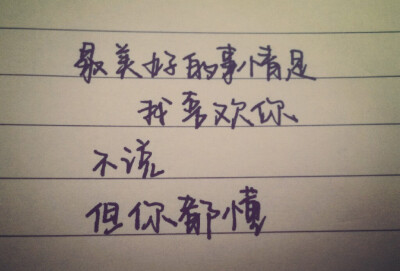 最美好的事情是
我喜欢你
不说
但你都懂